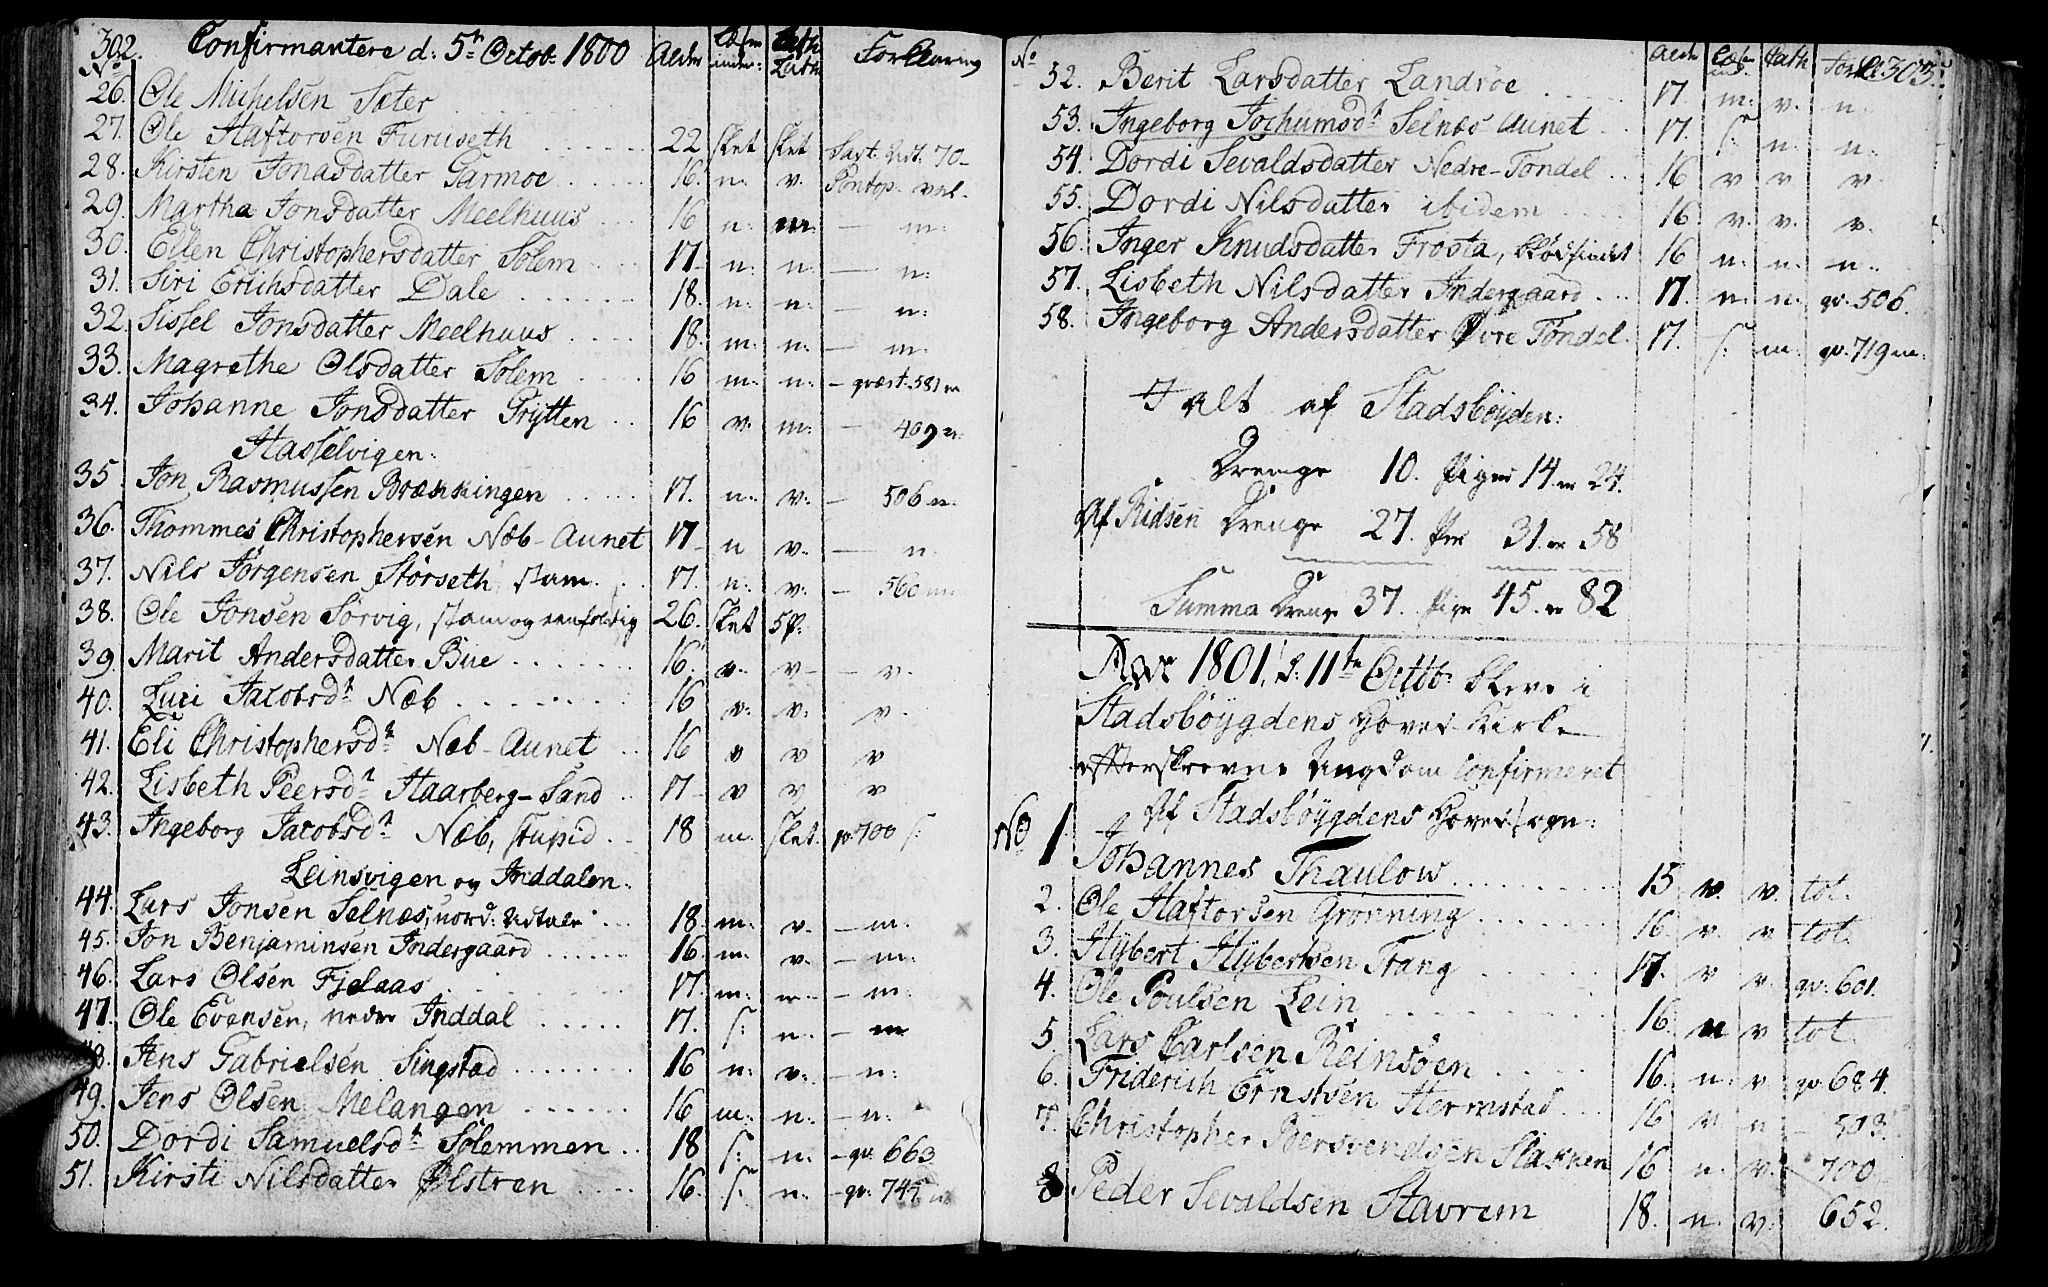 302. Confirmantere d: 5te Octob: 1800 Alder Læsn inden: Cath Luth Forklaring
No
26. Ole Michelsen Sæter
27. Ole Haftorsen Furuseth 22 sket sket Saxt. Udt. 70-
28. Kirsten Jonasdatter Garmoe 16. n: v. Pontop. vel.
29. Martha Jonsdatter Meelhuus 16 n: m: — m:
30. Ellen Christophersdatter Solem 17 n: n: — n:
31. Siri Erichsdatter Dale 18. n: n: — n:
32. Sissel Jonsdatter Meelhuus 18. m: n: — m:
33. Magrethe Olsdatter Solem 16 m: n: — qvæst. 581 m
34. Johanne Jonsdatter Trÿtten 16 v. m: — 409 n.
Hasselvigen:
35. Jon Rasmussen Brækkingen 17. n: v. — 506 n.
36. Thommes Christophersen Næb-Aunet 17 n v. — n.
37. Nils Jørgensen Størseth, stam. 17. n: v. — 560 m:
38. Ole Jonsen Sørvig, stam og eenfoldig 26. sket sp.
39. Marit Andersdatter Bue 16. v. v — v.
40. Luci Jacobsdr Næb 16 v. v. v.
41. Eli Christophersdr Næb-Aunet 16 v v v
42. Lisbeth Peersdr Haarberg-Sand 17 v v v
43. Ingeborg Jacobsdr Næb, stupid 18 m. sket. qv 700 s:
Leinsvigen og Inddalen:
44. Lars Jonsen Selnæs, uord: Udtale 18. m: v. — m:
45. Jon Benjaminsen Indergaard 16. m: v. — m:
46. Lars Olsen Fjelaas 17. m: n: — m:
47. Ole Evensen, nedre Inddal 17. s: n: — m
48. Jens Gabrielsen Singstad 16 n: v. — n:
49. Jens Olsen Melangen 16 m: n: — n:
50. Dordi Samuelsdr Solemmen 18 s: n: — qv. 663
51. Kirsti Nilsdatter Ølstren 16. s: n: — qv. 745
No Alder Læsn ind. Cath Forkl. 303.
52. Berit Larsdatter Landrøe 17. m: v. n:
53. Ingeborg Jochumsdr Selnæs Aunet 17. s: n. n:
54. Dordi Sevaldsdatter Nedre-Tøndel 16 v v v
55. Dordi Nilsdatter ibidem 16. v. v. v.
56. Inger Knudsdatter Frosta, blødsindet 16 n: n: n:
57. Lisbeth Nilsdatter Indergaard 17. n: n: qv. 506.
58. Ingeborg Andersdatter Øvre Tøndel. 17. s: m: qv. 719 m:
I alt af Stadsbøyden:
Drenge 10. Piger 14. er 24.
Af Ridsen Drenge 27. Per 31. er 58
Summa Drenge 37. Pige 45. er 82
Aar 1801, d: 11te Octob: bleve i
Stadsbøygdens Hoved Kirke
efterskrevne Ungdom Confirmeret
Af Stadsbøygdens Hovedsogn:
No 1. Johannes Thaulow 15 v. v. tot.
2. Ole Haftorsen Grønning 16. v. v tot.
3. Hÿbert Hÿbertsen Trang 17. v v. qv. 601.
4. Ole Poulsen Lein 16. n v tot.
5. Lars Carlsen Reinsøen 16. n: v qv. 684.
6. Friderich Ernstsen Hermstad 16 v. n — 503.
7. Christopher Bersvendsen Stakken 16 n. v. 700.
8. Peder Sevaldsen Stavrem 18. n. v. 652.